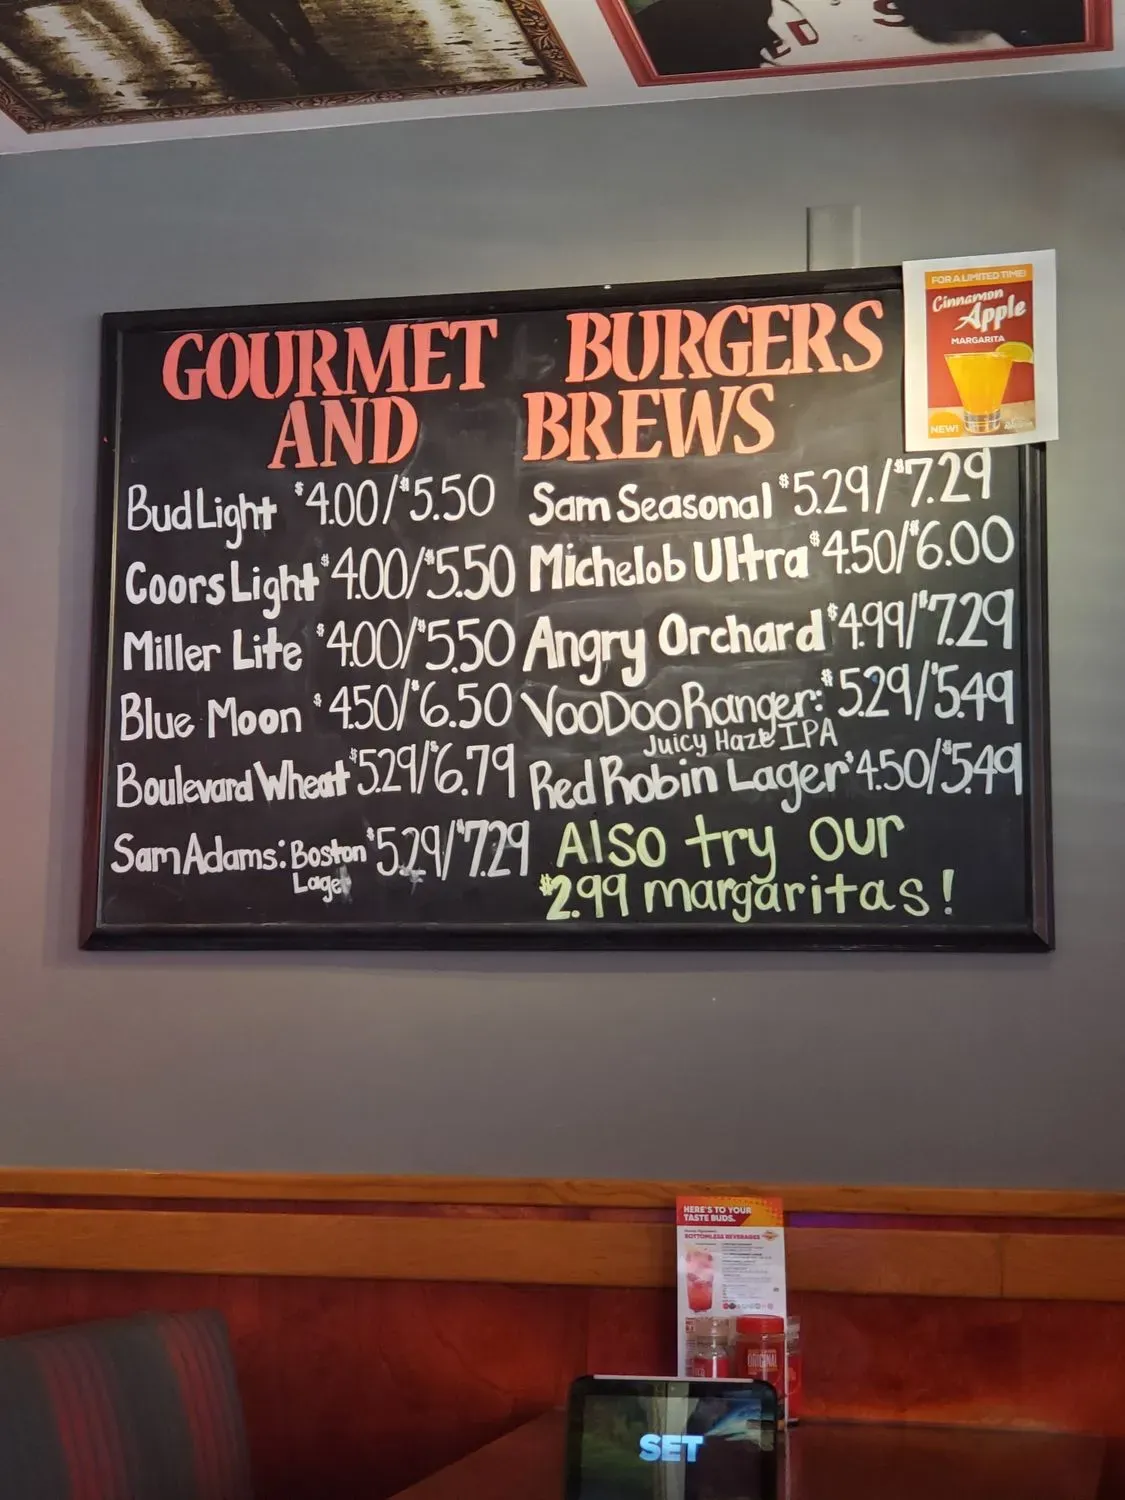 GOURMET BURGERS
AND BREWS
Bud Light $4.00/$5.50
Coors Light $4.00/$5.50
Miller Lite $4.00/$5.50
Blue Moon $4.50/$6.50
Boulevard Wheat $5.29/$6.79
Sam Adams: Boston $5.29/$7.29
Lager
Sam Seasonal $5.29/$7.29
Michelob Ultra $4.50/$6.00
Angry Orchard $4.99/$7.29
VooDoo Ranger: $5.29/$5.49
Juicy Haze IPA
Red Robin Lager $4.50/$5.49
Also try our
$2.99 margaritas!
FOR A LIMITED TIME!
Cinnamon
Apple
MARGARITA
NEW!
HERE'S TO YOUR
TASTE BUDS.
BOTTOMLESS BEVERAGES
ORIGINAL
SET